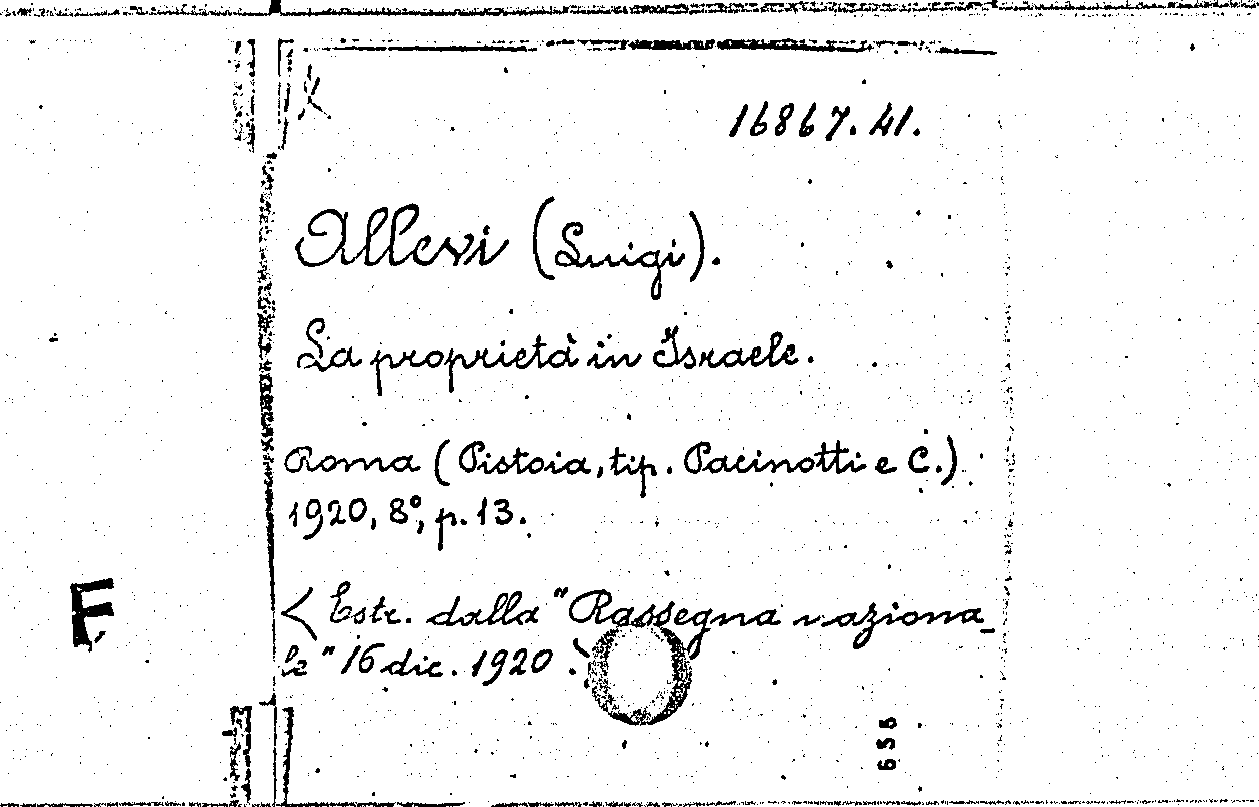 16867.41.
Allevi (Luigi).
La proprietà in Israele.
Roma (Pistoia, tip. Pacinotti e C.)
1920, 8°, p. 13.
< Estr. dalla "Rassegna naziona_
le" 16 dic. 1920.
F
655